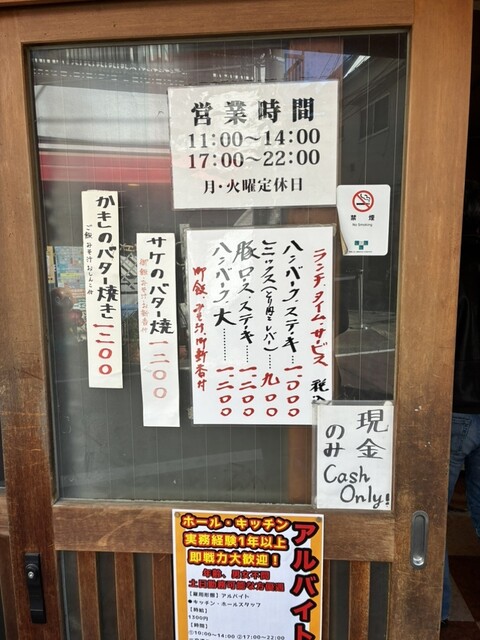 営業時間
11:00〜14:00
17:00〜22:00
月・火曜定休日
禁煙
No Smoking
ランチタイムサービス 税込
ハンバーグステーキ……一、〇〇〇
ミックス(とり肉とレバー)……九〇〇
豚ロースステーキ……一、二〇〇
ハンバーグ大……一、二〇〇
御飯、みそ汁、御新香付
サケのバター焼 一二〇〇
御飯みそ汁お新香付
かきのバター焼き 一二〇〇
ご飯 みそ汁 おしんこ付
現金
のみ
Cash
Only!
アルバイト
ホール・キッチン
実務経験1年以上
即戦力大歓迎!
年齢、男女不問
土日勤務可能な方優遇
【雇用形態】アルバイト
●キッチン・ホールスタッフ
【時給】
1300円
【時間】
①10:00〜14:00 ②17:00〜22:00